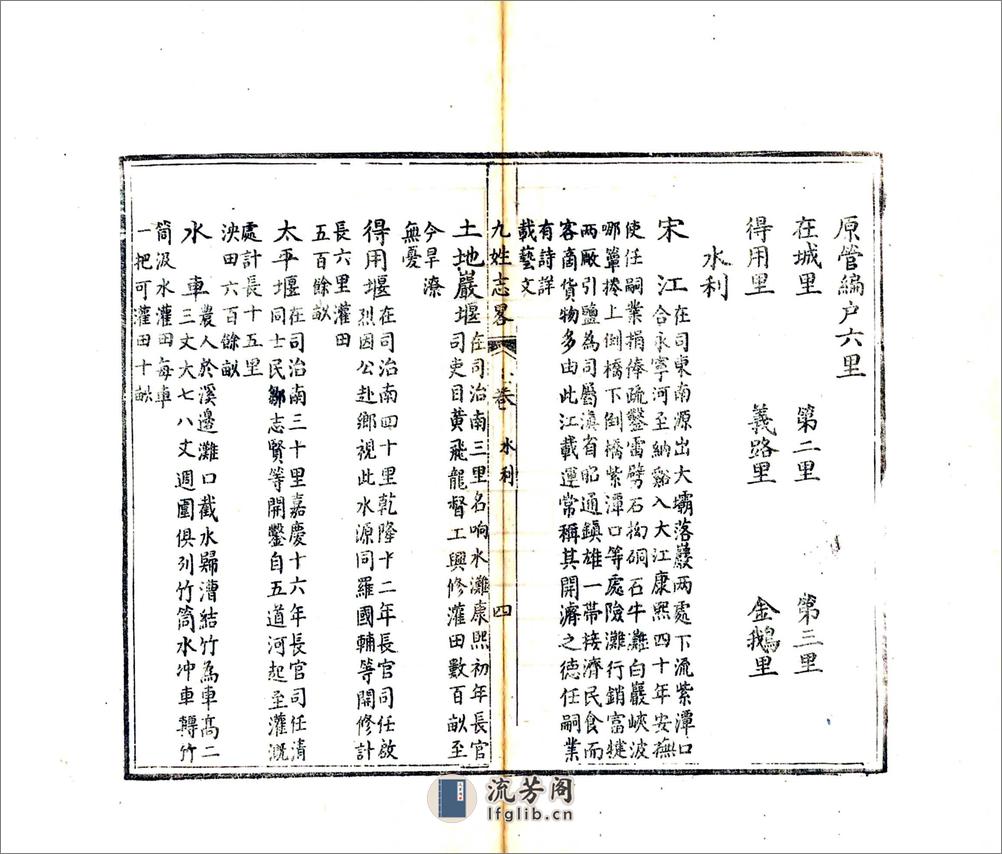 原管編户六里
在城里 第二里 第三里
得用里 義路里 金鵝里
水利
宋江
在司東南源出大壩落巖兩處下流紫潭口
合永寧河至納谿入大江康熙四十年安撫
使任嗣業捐俸疏鑿雷劈石拗硐石牛灘白巖峽波
哪簞捲上倒橋下倒橋紫潭口等處險灘行銷富犍
兩厰引鹽為司屬滇省昭通鎮雄一帶接濟民食而
客商貨物多由此江載運常稱其開濟之德任嗣業
有詩詳
載藝文
九姓志畧 卷 水利 四
土地巖堰
在司治南三里名响水灘康熙初年長官
司吏目黄飛龍督工興修灌田數百畝至
今旱潦
無憂
得用堰
在司治南四十里乾隆十二年長官司任啟
烈因公赴鄉視此水源同羅國輔等開修計
長六里灌田
五百餘畝
太平堰
在司治南三十里嘉慶十六年長官司任清
同士民鄒志賢等開鑿自五道河起至灌溉
處計長十五里
泱田六百餘畝
水車
農人於溪邊灘口截水歸漕結竹為車高二
三丈大七八丈週圍俱列竹筒水冲車轉竹
筒汲水灌田每車
一把可灌田十畝
流芳阁
lfglib.cn